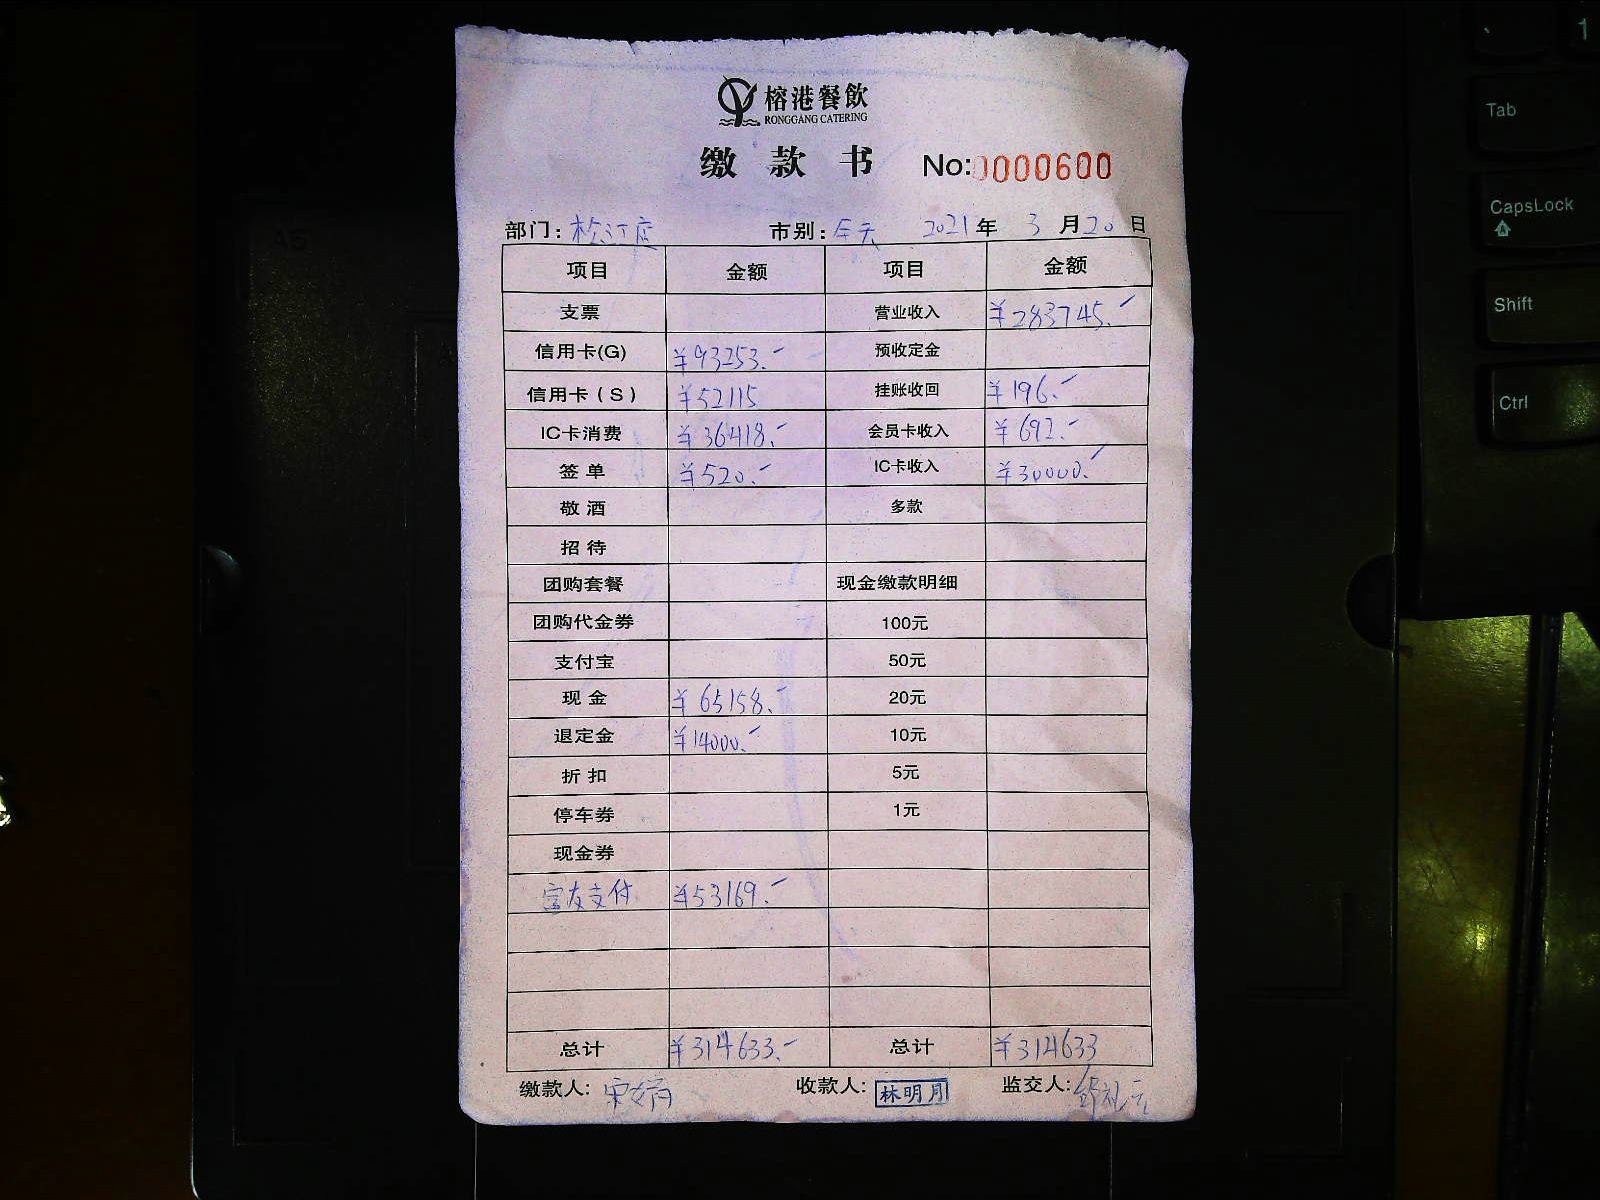 榕港餐飲
RONGGANG CATERING
缴款书 No:0000600
部门: 松江店 市别: 全天 2021年3月20日
项目 金额 项目 金额
支票 营业收入 ¥283745.-
信用卡(G) ¥93253.- 预收定金
信用卡(S) ¥52115 挂账收回 ¥196.-
IC卡消费 ¥36418.- 会员卡收入 ¥692.-
签单 ¥520.- IC卡收入 ¥30000.-
敬酒 多款
招待
团购套餐 现金缴款明细
团购代金券 100元
支付宝 50元
现金 ¥65158.- 20元
退定金 ¥14000.- 10元
折扣 5元
停车券 1元
现金券
富友支付 ¥53169.-
总计 ¥314633.- 总计 ¥314633
缴款人: 收款人: 林明月 监交人:
Tab
CapsLock
Shift
Ctrl
1